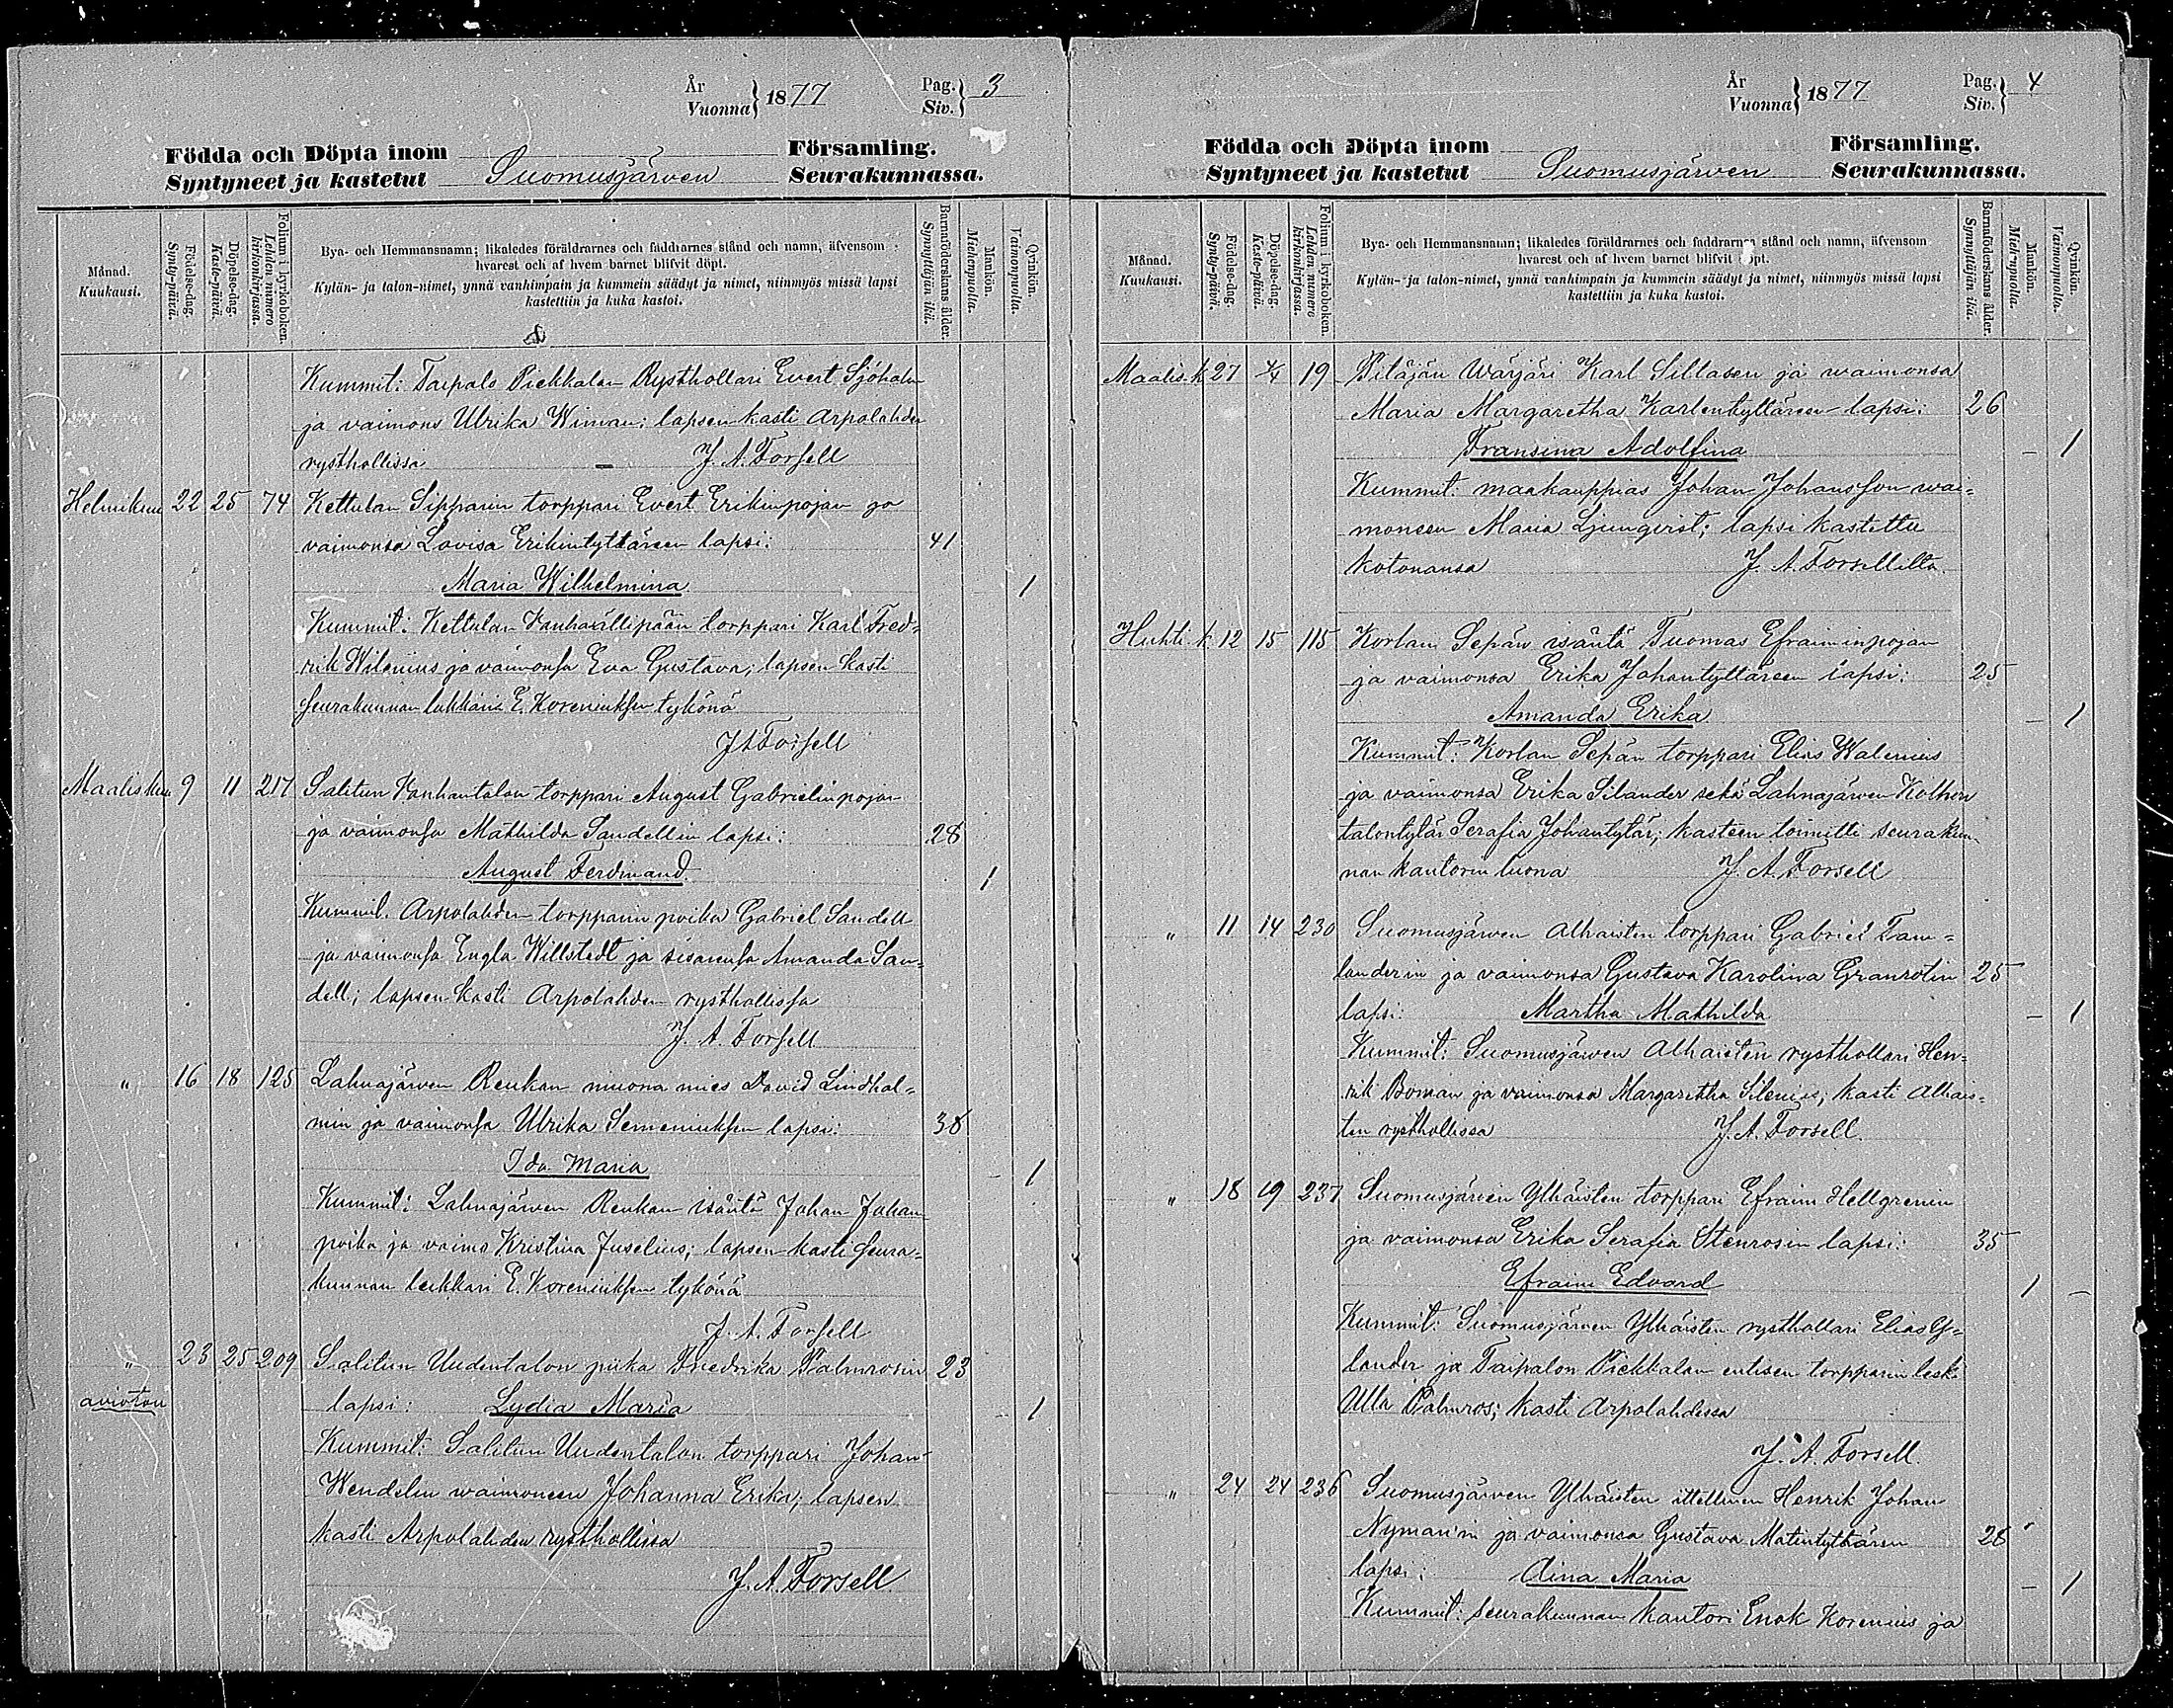 År
Vuonna } 1877 Pag.
Siv. } 3
Födda och Döpta inom Församling.
Syntyneet ja kastetut Suomusjärven Seurakunnassa.
Månad.
Kuukausi.
Födelse-dag.
Synty-päivä.
Döpelse-dag.
Kaste-päivä.
Folium i kyrkoboken.
Lehden numero kirkonkirjassa.
Bya- och Hemmansnamn; likaledes föräldrarnes och faddrarnes stånd och namn, äfvensom
hvarest och af hvem barnet blifvit döpt.
Kylän- ja talon-nimet, ynnä vanhimpain ja kummein säädyt ja nimet, niinmyös missä lapsi
kastettiin ja kuka kastoi.
Barnaföderskans ålder.
Synnyttäjän ikä.
Mankön.
Miehenpuolia.
Qvinkön.
Vaimonpuolia.
Kummit: Taipalo Pickkalan Rysthollari Evert Sjöholm
ja vaimons Ulrika Wiman; lapsen kasti Arpolahden
rysthollissa J. A. Forsell
Helmikuu 22 25 74 Kettulan Sipparin torppari Evert Erikinpojan ja
vaimonsa Lovisa Erikintyttäreen lapsi: 41
Maria Wilhelmina 1
Kummit: Kettulan torppari Karl Fred-
rik Wilenius ja vaimonsa Eva Gustava; lapsen kasti
seurakunnan lukkarin E. Koreniuksen tykönä
J A Forsell
Maaliskuu 9 11 217 Salitun Vanhantalon torppari August Gabrielinpojan
ja vaimonsa Mathilda Sandellin lapsi: 28
August Ferdinand 1
Kummit. Arpolahden torpparin poika Gabriel Sandell
ja vaimonsa Engla Willstedt ja sisarensa Amanda San-
dell; lapsen kasti Arpolahden rysthollissa
J. A. Forsell
" 16 18 125 Lahnajärven Reukan muona mies David Lindhol-
min ja vaimonsa Ulrika Semeniuksen lapsi: 38
Ida Maria 1
Kummit: Lahnajärven Reukan isäntä Johan Johan
poika ja vaimo Kristina Juselius; lapsen kasti seura-
kunnan lukkari E. Koreniuksen tykönä
J. A. Forsell
" 23 25 209 Salitun Uudentalon piika Fredrika Palmrosin 23
avioton lapsi: Lydia Maria 1
Kummit: Salitun Uudentalon torppari Johan
Wendelin waimoneen Johanna Erika; lapsen
kasti Arpolahden rysthollissa
J. A. Forsell
År
Vuonna } 1877 Pag.
Siv. } 4
Födda och Döpta inom Församling.
Syntyneet ja kastetut Suomusjärven Seurakunnassa.
Månad.
Kuukausi.
Födelse-dag.
Synty-päivä.
Döpelse-dag.
Kaste-päivä.
Folium i kyrkoboken.
Lehden numero kirkonkirjassa.
Bya- och Hemmansnamn; likaledes föräldrarnes och faddrarnes stånd och namn, äfvensom
hvarest och af hvem barnet blifvit pt.
Kylän- ja talon-nimet, ynnä vanhimpain ja kummein säädyt ja nimet, niinmyös missä lapsi
kastettiin ja kuka kastoi.
Barnaföderskans ålder.
Synnyttäjän ikä.
Mankön.
Miehenpuolia.
Qvinkön.
Vaimonpuolia.
Maalis.k 27 19 Pitäjän Wärjäri Karl Sillasen ja waimonsa
Maria Margaretha Karlentyttäreen lapsi: 26
Fransina Adolfina – 1
Kummit: maakauppias Johan Johansson wai-
moneen Maria Ljungqvist; lapsi kastettu
kotonansa J. A. Forsellilta.
Huhti.k. 12 15 115 Korlan Sepän isäntä Tuomas Efraiminpojan
ja vaimonsa Erika Johantyttäreen lapsi: 25
Amanda Erika – 1
Kummit: Korlan Sepän torppari Elias Walenius
ja vaimonsa Erika Silander sekä Lahnajärven Kolhon
talontytär Serafia Johantytär; kasteen toimitti seurakun-
nan kantorin luona J. A. Forsell
" 11 14 230 Suomusjärven Alhaisten torppari Gabriel Tam-
landerin ja vaimonsa Gustava Karolina Granrotin 25
lapsi: Martha Mathilda – 1
Kummit: Suomusjärven Alhaisten rysthollari Hen-
rik Boman ja vaimonsa Margaretha Silenius; kasti Alhais-
ten rysthollissa J. A. Forsell.
" 18 19 237 Suomusjärven Ylhäisten torppari Efraim Hellgrenin
ja vaimonsa Erika Serafia Stenrosin lapsi: 35
Efraim Edvard 1 –
Kummit: Suomusjärven Ylhäisten rysthollari Elias Y-
lander ja Taipalon Pickkalan entisen torpparin leski
Ulla Palmros; kasti Arpolahdessa
J. A. Forsell.
" 24 24 236 Suomusjärven Ylhäisten itsellinen Henrik Johan
Nyman'in ja vaimonsa Gustava Matintyttären 28
lapsi: Aina Maria – 1
Kummit: seurakunnan kantori Enok Korenius ja